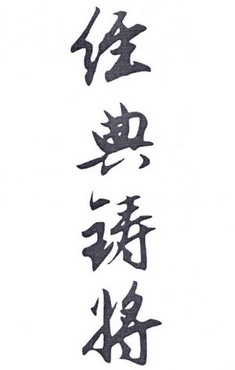 经典铸将